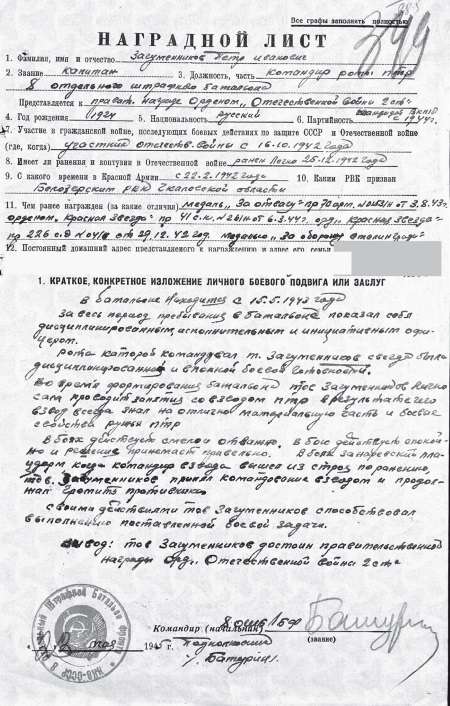 Все графы заполнять полностью
НАГРАДНОЙ ЛИСТ
1. Фамилия, имя и отчество Загуменников Петр Иванович
2. Звание Капитан 3. Должность, часть Командир роты ПТР
8 отдельного штрафного батальона
Представляется к правит. награде Орденом „Отечественной войны 2 ст"
4. Год рождения 1924 5. Национальность русский 6. Партийность кандидат ВКП/б
с 1944 г.
7. Участие в гражданской войне, последующих боевых действиях по защите СССР и Отечественной войне
(где, когда) участник отечеств. войны с 16.10.1942 года
8. Имеет ли ранения и контузии в Отечественной войне. ранен легко 25.12.1942 года
9. С какого времени в Красной Армии с 22.2.1942 года 10. Каким РВК призван
Белозерским РВК Чкаловской области
11. Чем ранее награжден (за какие отличия) медаль „За отвагу" пр 70 арм. от 3.8.43 г.
орденом „Красная Звезда" пр 41 с.к. от 6.3.44 г. орд „Красная Звезда"
пр 226 с.д от 29.12.42 год. медалью „За оборону Сталинграда"
12. Постоянный домашний адрес представляемого к награждению и адрес его семьи
1. КРАТКОЕ, КОНКРЕТНОЕ ИЗЛОЖЕНИЕ ЛИЧНОГО БОЕВОГО ПОДВИГА ИЛИ ЗАСЛУГ
В батальоне находится с 15.5.1943 года
За весь период пребывания в батальоне показал себя
дисциплинированным, исполнительным и инициативным офи-
цером.
Рота которой командувал т. Загуменников всегда была
дисциплинированной и в полной боевой готовности.
Во время формирования батальона тов Загуменников лично
сам проводит занятия со взводом ПТР в результате чего
взвод всегда знал на отлично материальную часть и боевые
свойства ружья ПТР
В боях действует смело и отважно. в бою действует спокой-
но и решение принемает правельно. В боях за наревский пла-
цдарм когда командир взвода вышел из строя по ранению,
тов. Загуменников принял командование взводом и продо-
лжал громить противника
своими действиями тов Загуменников способствовал
выполнению поставленной боевой задачи.
вывод: тов Загуменников достоин правительственной
награды Орд. „Отечественной война 2 ст"
Командир (начальник) 8 ОШБ 1БФ
(звание)
1945 г. Подполковник
/Батурин/.